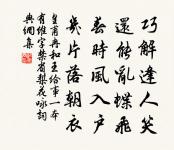 巧解逢人笑
還能亂蝶飛
春時風入戶
幾片落朝衣
皇甫冉和王給事本
有維字禁省梨花詠詞
典綢集